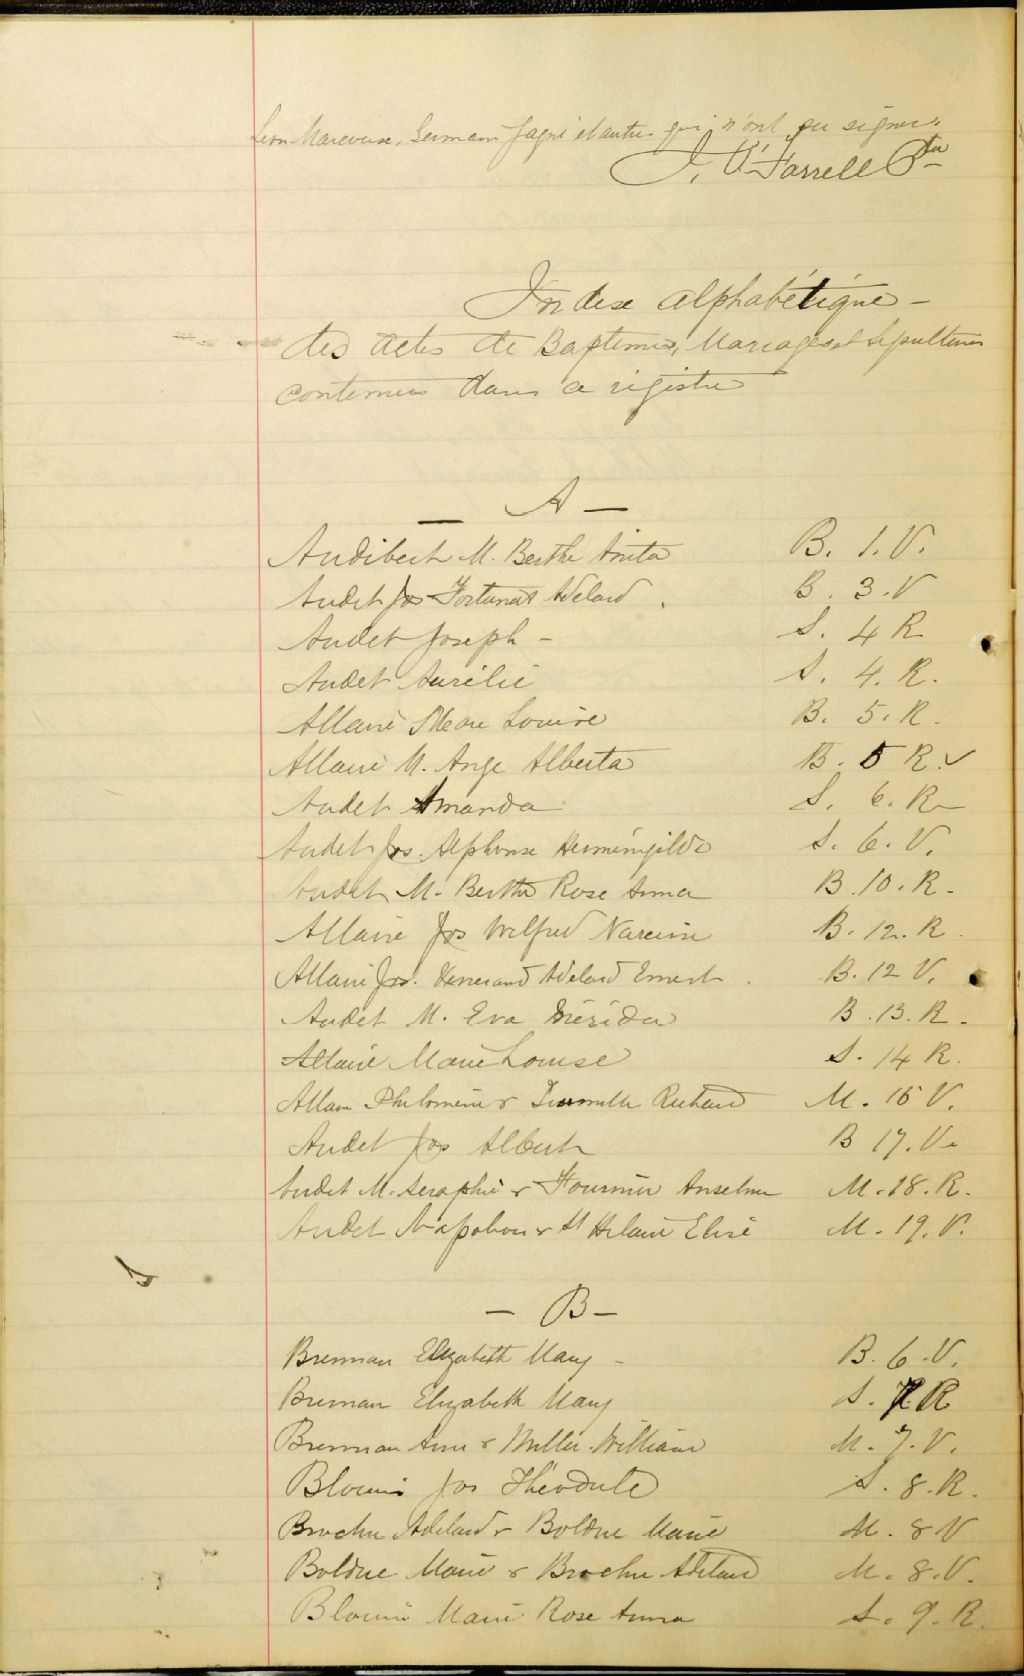 Germain Gagné et autres qui n'ont su signer.
J. O'Farrell Ptre
Index alphabétique -
des actes de Baptemes, Mariages et Sepultures
contenus dans ce registre
- A -
Audibert M. Berthe Anita B. 1. V.
Audet Jos Fortunat Adelard . B. 3. V
Audet Joseph - S. 4 R
Audet Aurélie S. 4. R.
Allaire Louise B. 5. R.
Allaire M. Ange Alberta B. 5 R. ✓
Audet Amanda S. 6. R
Audet Jos. Alphonse Herménégilde S. 6. V.
Audet M. Bertha Rose Anna B. 10. R.
Allaire Jos Wilfred Narcisse B. 12. R.
Allaire Jos. Venerand Adelard Ernest . B. 12 V.
Audet M. Eva B. 13. R.
Allaire Marie Louise S. 14 R.
Allaire Philomène & Richard M. 15 V.
Audet Jos Albert B 17. V.
Audet M. Seraphie & Fournier Anselme M. 18. R.
Audet Napoleon & St Helaire Elise M. 19. V.
- B -
Brennan Elizabeth Mary - B. 6. V.
Brennan Elizabeth Mary S. 7 R
Brennan Ann & Miller William M. 7. V.
Blouin Jos Théodule S. 8. R.
Brochu Adelard & Bolduc Marie M. 8 V
Bolduc Marie & Brochu Adelard M. 8. V.
Blouin Marie Rose Anna S. 9. R.